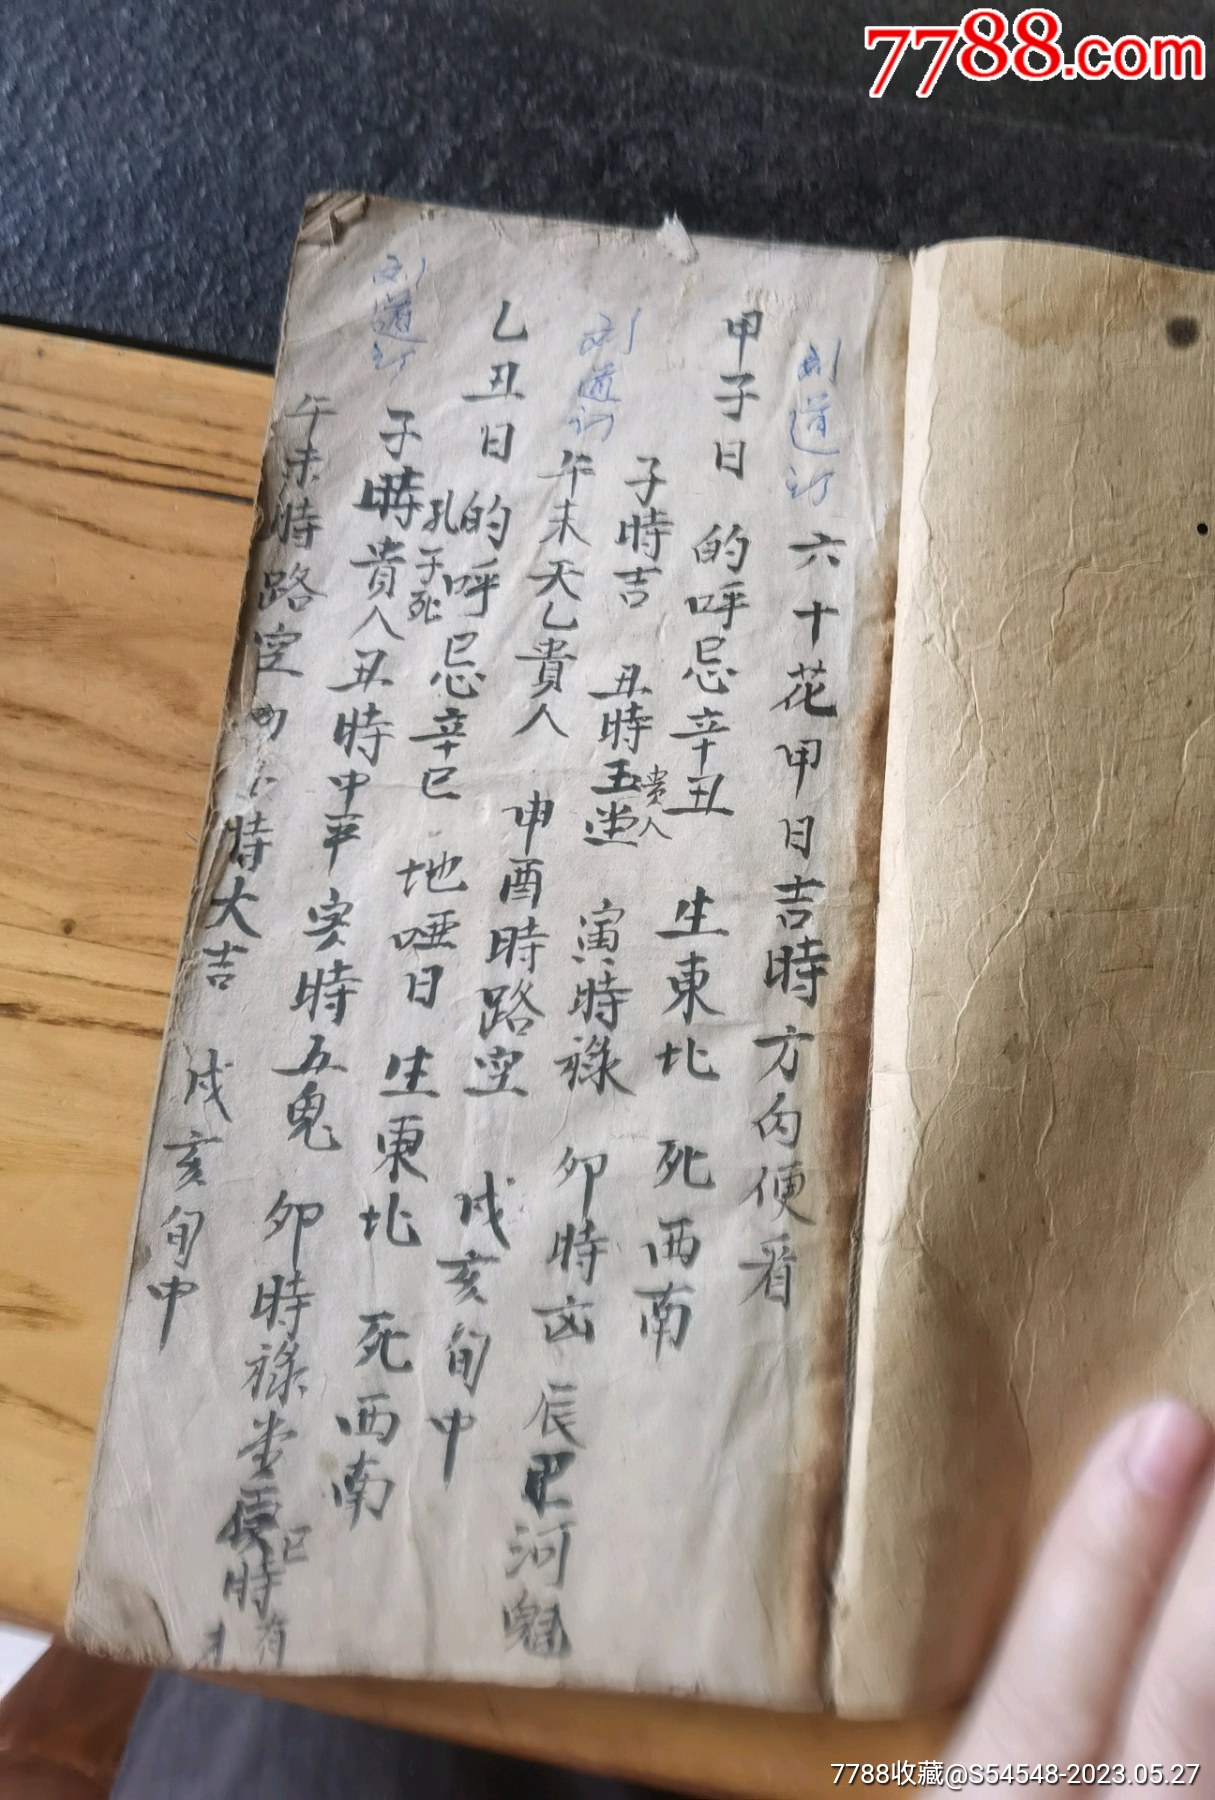 7788.com
六十花甲日吉時方向便看
甲子日 的呼忌辛丑 生東北 死西南
子時吉 丑時玉堂貴人 寅時祿 卯時凶 辰巳河魁
午未天乙貴人 申酉時路空 戌亥旬中
乙丑日 的呼忌辛巳 地啞日 生東北 死西南
孔子死
子時貴人丑時中平 寅時五鬼 卯時祿堂 時有
午未時路空 時大吉 戌亥旬中
刘道订
刘道订
刘道订
7788收藏@S54548-2023.05.27